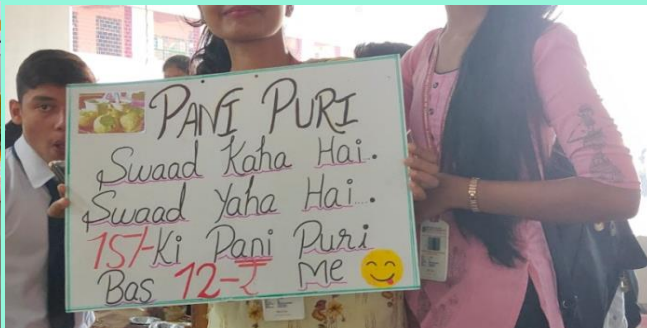 PANI PURI
Swaad Kaha Hai.
Swaad Yaha Hai...
15/-Ki Pani Puri
Bas 12-₹ Me